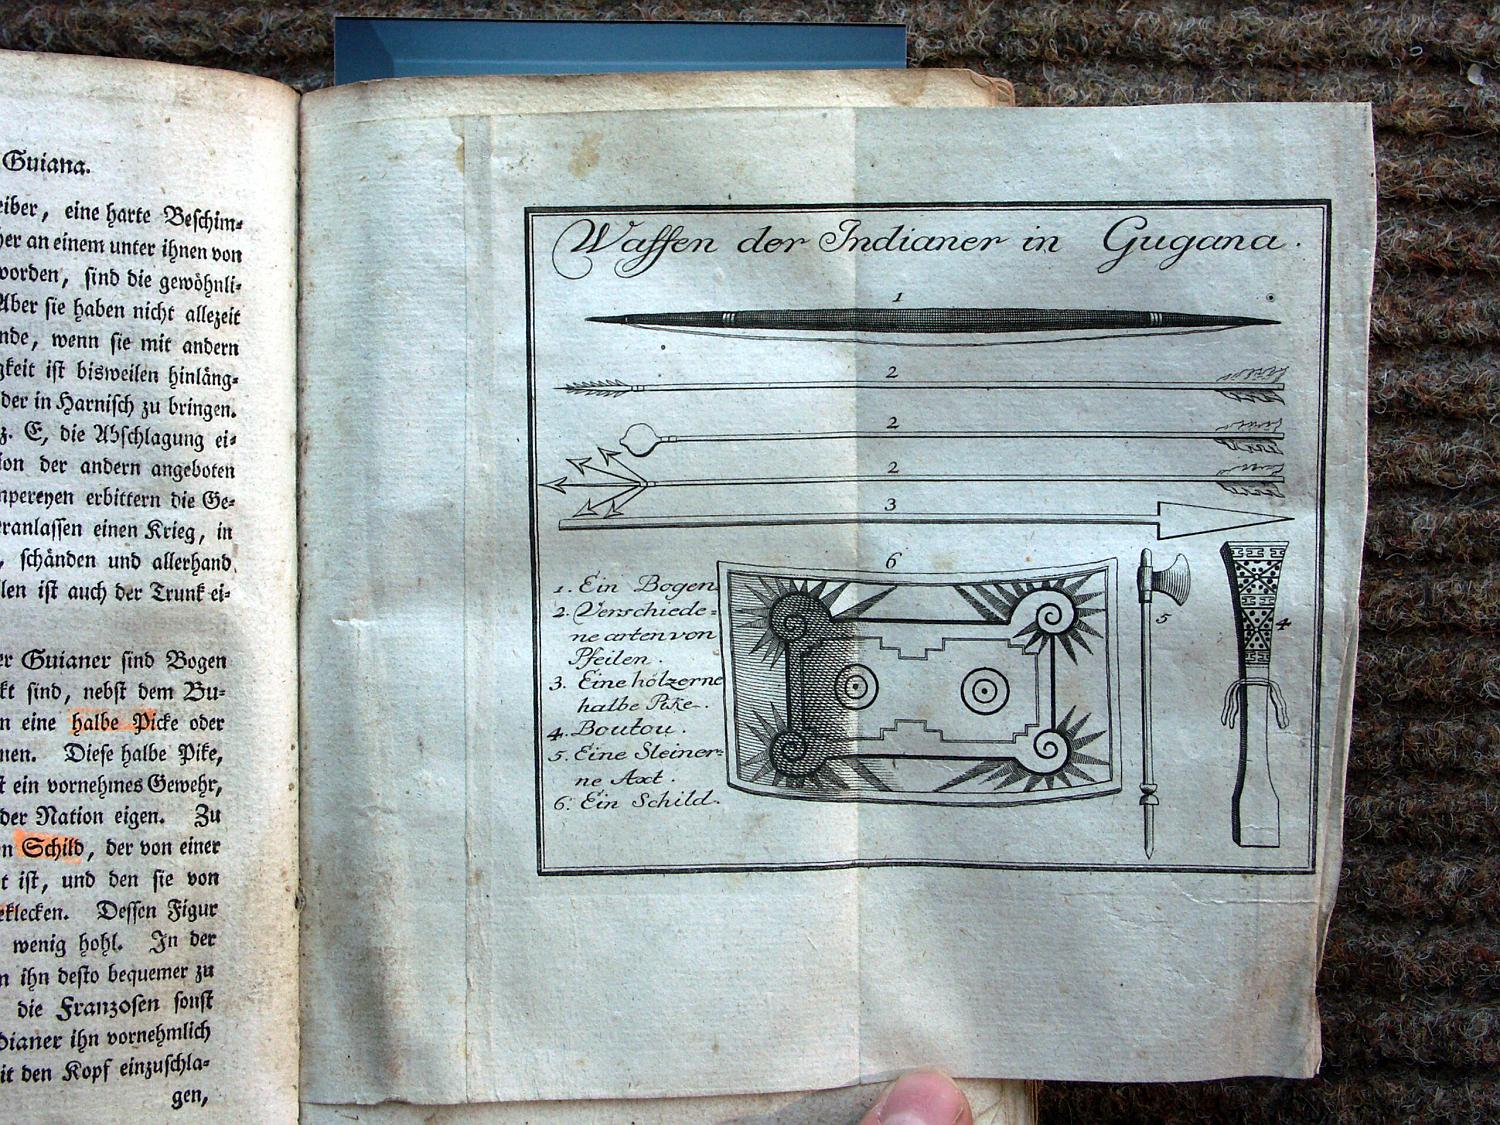 Guiana.
eiber, eine harte Beschim-
her an einem unter ihnen von
worden, sind die gewöhnli-
Aber sie haben nicht allezeit
nde, wenn sie mit andern
gkeit ist bisweilen hinläng-
der in Harnisch zu bringen.
z. E, die Abschlagung ei-
ion der andern angeboten
mpereyen erbittern die Ge-
eranlassen einen Krieg, in
, schänden und allerhand
len ist auch der Trunk ei-
er Guianer sind Bogen
kt sind, nebst dem Bu-
n eine halbe Picke oder
nen. Diese halbe Pike,
st ein vornehmes Gewehr,
der Nation eigen. Zu
n Schild, der von einer
t ist, und den sie von
eklecken. Dessen Figur
wenig hohl. In der
n ihn desto bequemer zu
die Franzosen sonst
dianer ihn vornehmlich
it den Kopf einzuschla-
gen,
Waffen der Indianer in Gugana.
1
2
2
2
3
6
5
4
1. Ein Bogen
2. Verschiede=
ne arten von
Pfeilen.
3. Eine hölzerne
halbe Pike.
4. Boutou.
5. Eine Steiner=
ne Axt.
6. Ein Schild.